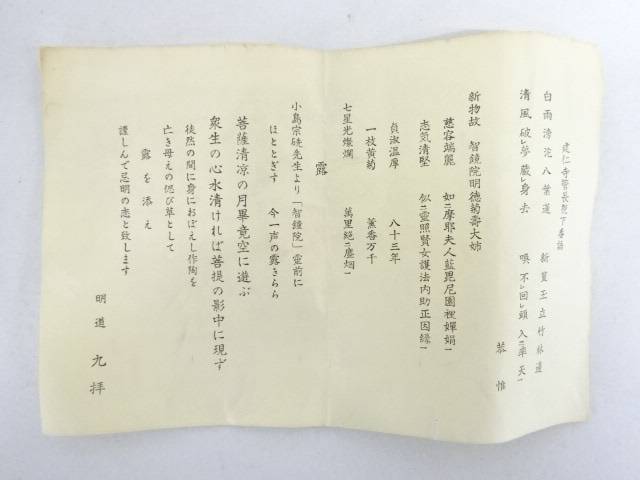 建仁寺管長猊下垂語
白雨滂沱八葉蓮　新篁玉立竹林邊
清風破レ夢蔵レ身去　喚不レ回レ頭入二率天一
恭惟
新物故　智鏡院明徳菊壽大姉
慈容端麗　如二摩耶夫人藍毘尼園裡嬋娟一
志気清堅　似二靈照賢女護法内助正因縁一
貞淑温厚　八十三年
一枝黄菊　薫香万千
七星光燦爛　萬里絶二塵烟一
露
小島宗硗先生より「智鐘院」霊前に
ほととぎす　今一声の露きらら
菩薩清凉の月畢竟空に遊ぶ
衆生の心水清ければ菩提の影中に現ず
徒然の間に身におぼえし作陶を
亡き母えの偲び草として
露を添え
謹しんで忌明の志と致します
明道　九拝